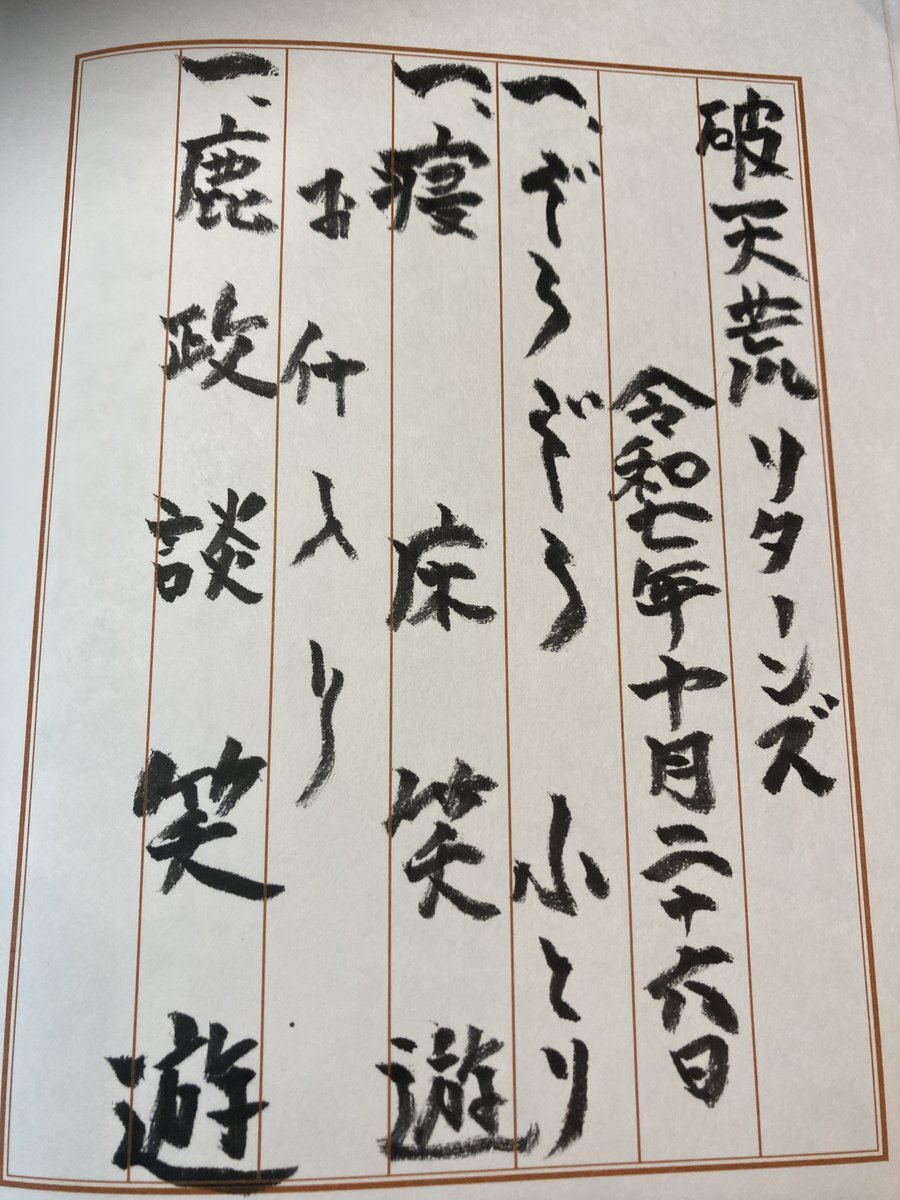 破天荒リターンズ
令和七年十月二十六日
一、ぞろぞろ 小とり
一、寝床 笑遊
お仲入り
一、鹿政談 笑遊